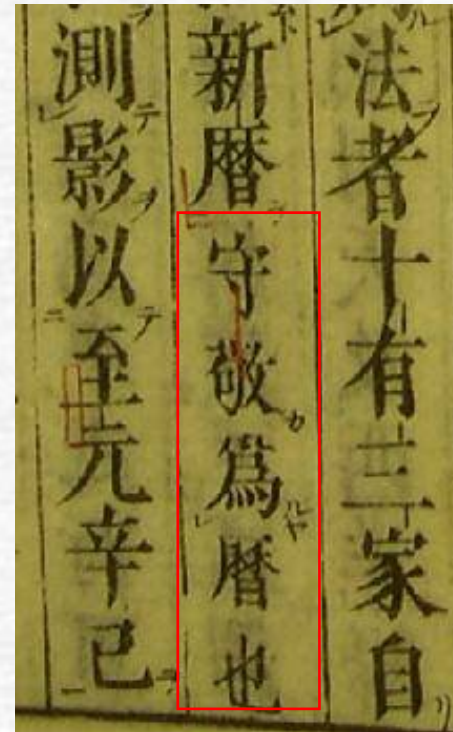 法者十有三家自
新暦守敬爲暦也
測影以至元辛已